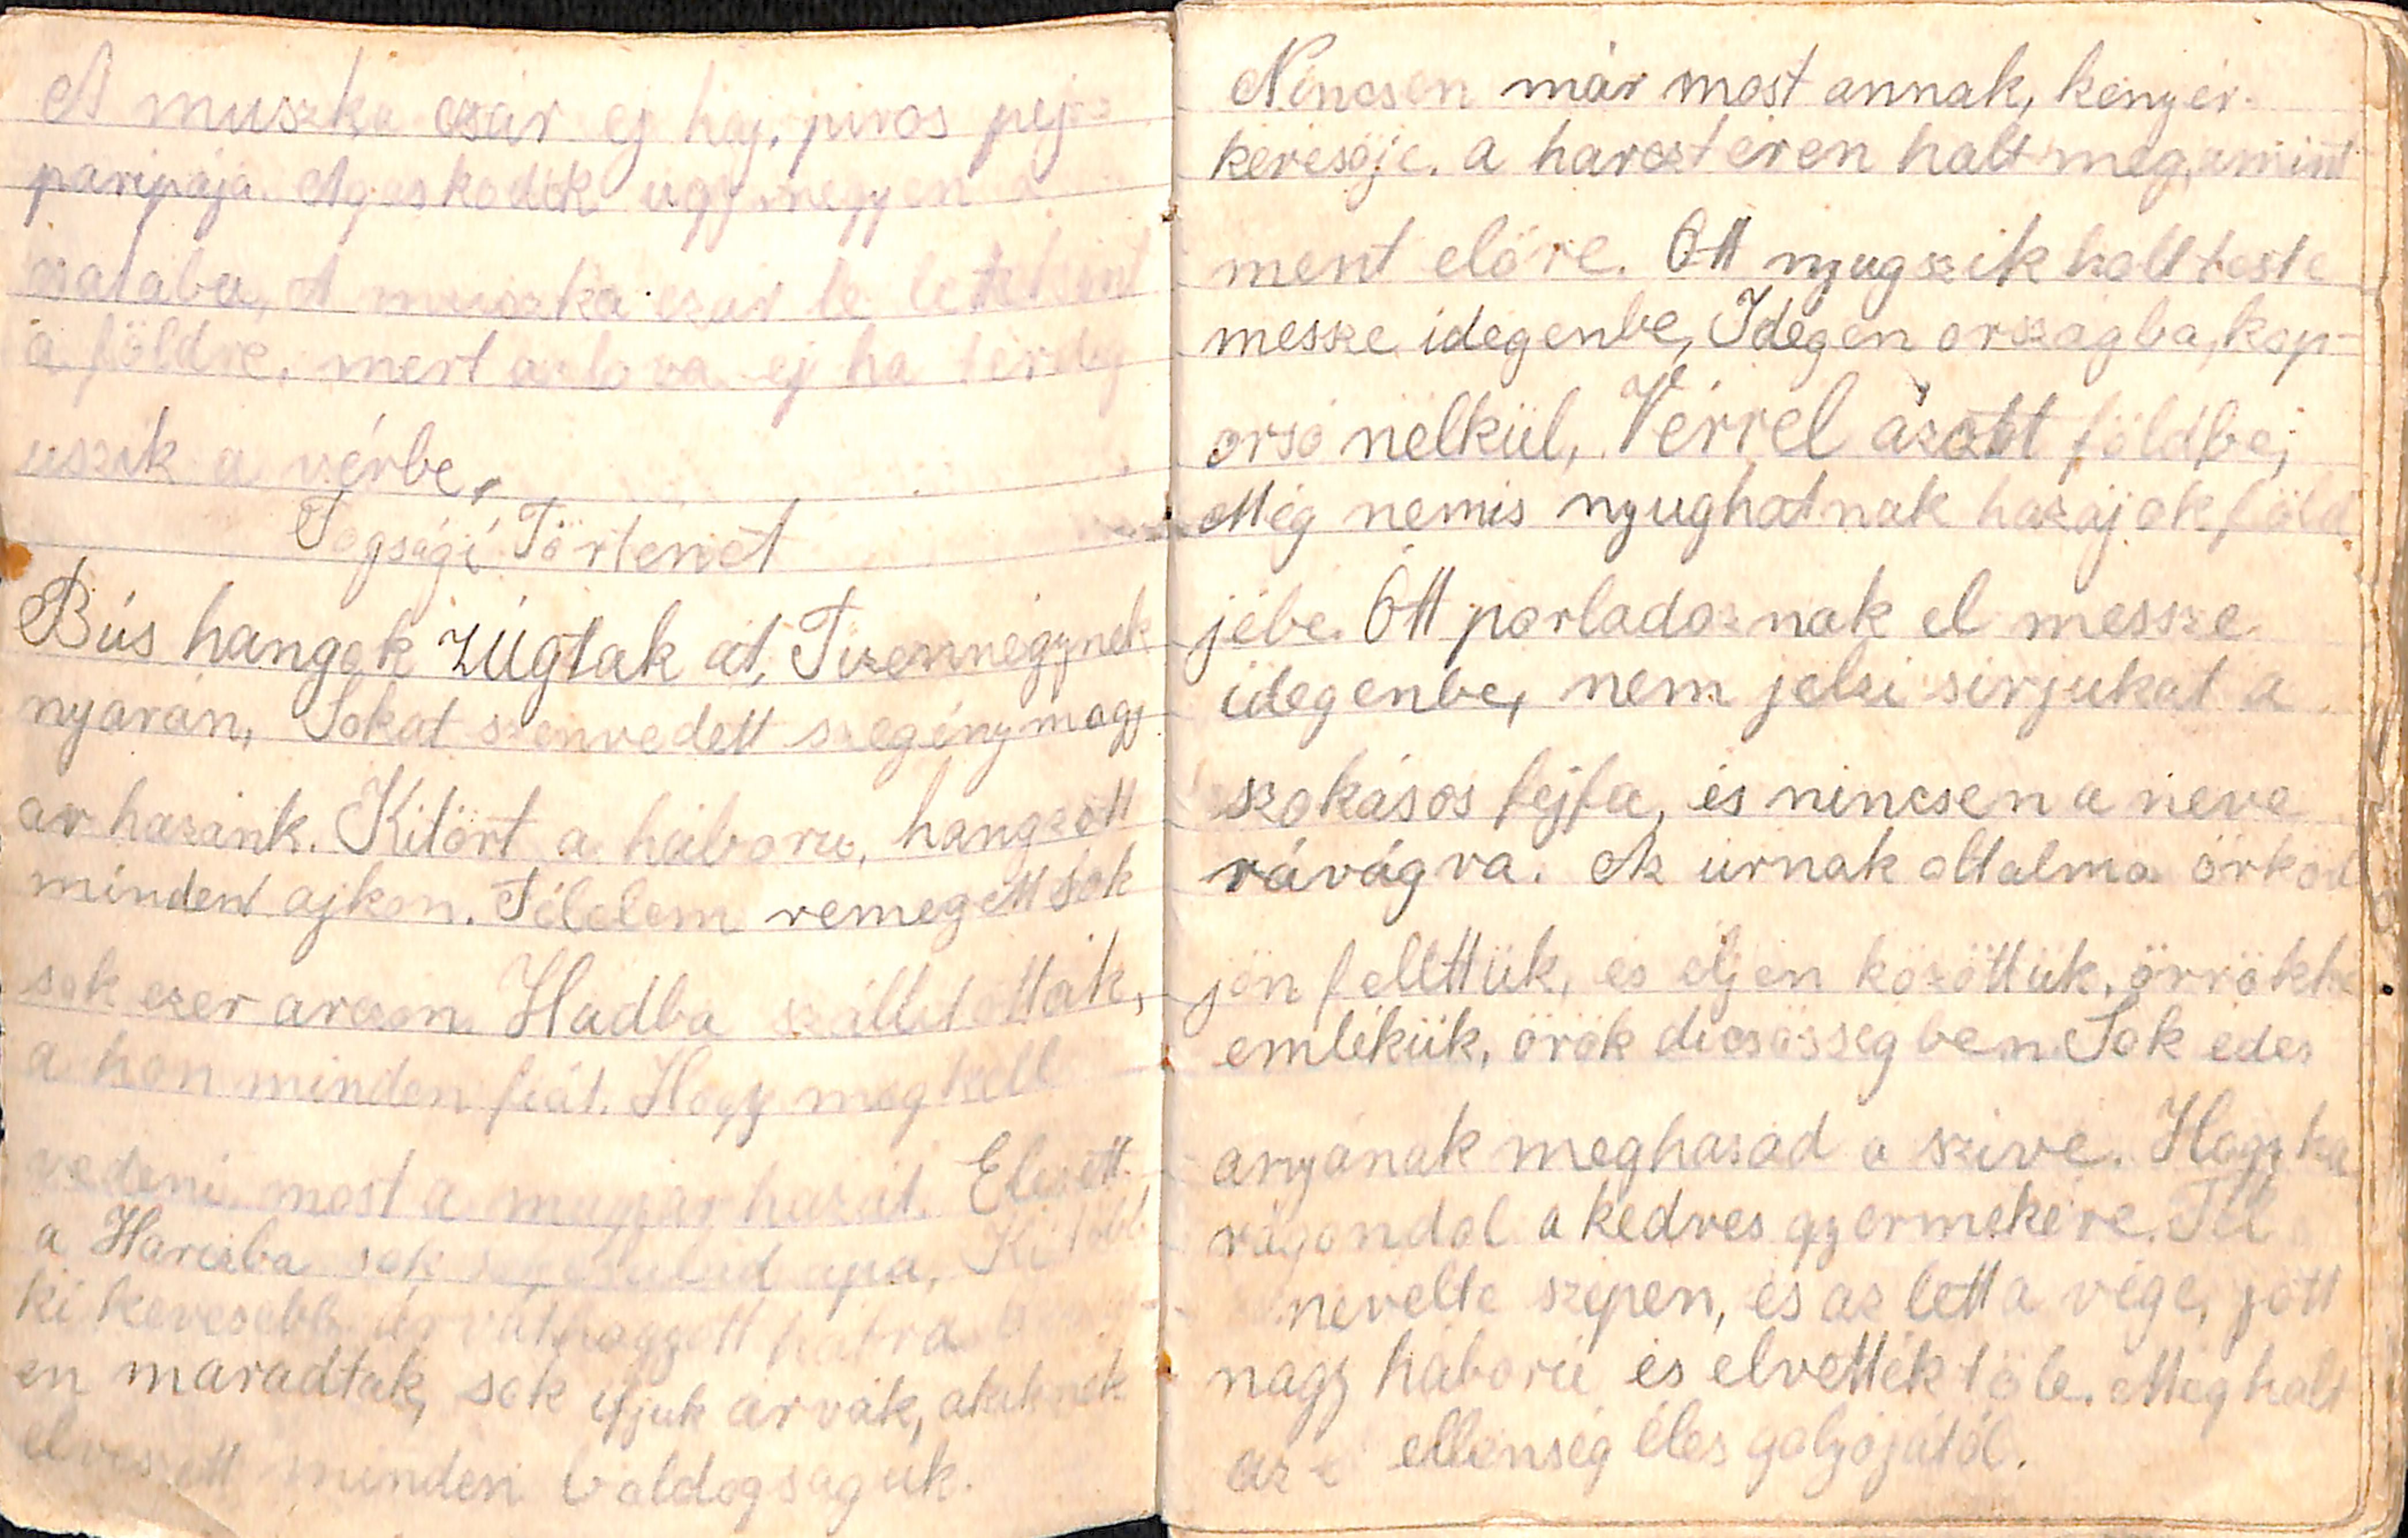 A muszka czár ej haj, piros pej
paripája Agaskodik ugy megyen a
csatába, A muszka czár le letekint
a földre, mert a lova ej ha térdig
uszik a vérbe,
Fogsági Történet
Bús hangok zúgtak át, Tizennégynek
nyarán, Sokat szenvedett szegény magy
ar hazánk. Kitört a háboru, hangzott
minden ajkon. Félelem remegett sok
sok ezer arczon Hadba szállitották,
a hon minden fiát. Hogy meg kell
vedeni most a magyar hazát. Elesett
a Harczba sok családapa, Ki több
ki kevesebb árvát hagyott hátra
en maradtak, sok ifjuk árvák, akiknek
elveszett minden boldogsaguk.
Nincsen már most annak, kenyér
keresője. a harcztéren halt meg, amint
ment előre. Ott nyugszik holtteste
messze idegenbe, Idegen országba, kop-
orsó nélkül, Vérrel ázott földbe,
Még nemis nyughatnak hazájok föld
jébe. Ott porladoznak el messze
idegenbe, nem jelzi sirjukat a
szokásos fejfa, és nincsen a neve
rávágva. Az urnak oltalma őrköd
jön fellttük, és éljen közöttük, örrökke
emlékük, örök dicsösségben Sok édes
anyának meghasad a szive. Hogy ha
rágondol a kedves gyermekére. Fel
nevelte szépen, és az lett a vége, jött
nagy háború és elvették töle. Meg halt
az ellenség éles golyójától.